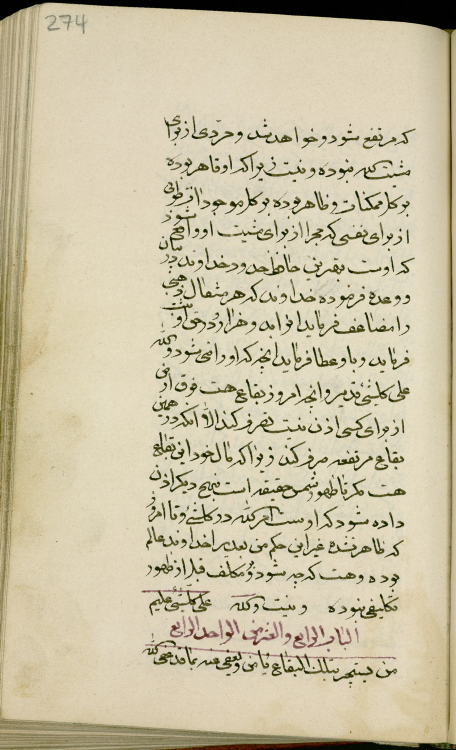 274
که مرتفع شود و خواهد شد و مردی از برای
مشیت الله نبوده و نیست زیرا که او قاهر بوده
بر کل ممکنات و ظاهر بوده بر کل موجودات طوبی
از برای نفسی که مجرا از برای مشیت او واقع شود
که اوست بهترین حافظ حدود خداوند در بیان
و وعده فرموده خداوند که هر مثقال ذهبی
را مضاعف فرماید و هزار در حق او
فرماید و باو عطا فرماید آنچه که او راضی شود والله
علی کلشیئ قدیر و آنچه امروز بقاع هست فوق ارض
از برای کسی اذن نیست تصرف کند الا آنکه در همین
بقاع مرتفعه صرف کند زیرا که مال خود این بقاع
هست مگر تا ظهور شمس حقیقه است بنهج دیگر اذن
داده شود که اوست امر الله در کلشیئ و تا امروز
که ظاهر نشده غیر این حکم من خداوند عالم
بوده و هست که چه شود و مکلف قبل از ظهور
تکلیفی نبوده و نیست والله علی کلشیئ علیم
الباب الرابع والعشر من الواحد الرابع
من یستجیر بتلک البقاع یامن و یعفی عنه بما قد عفی الله